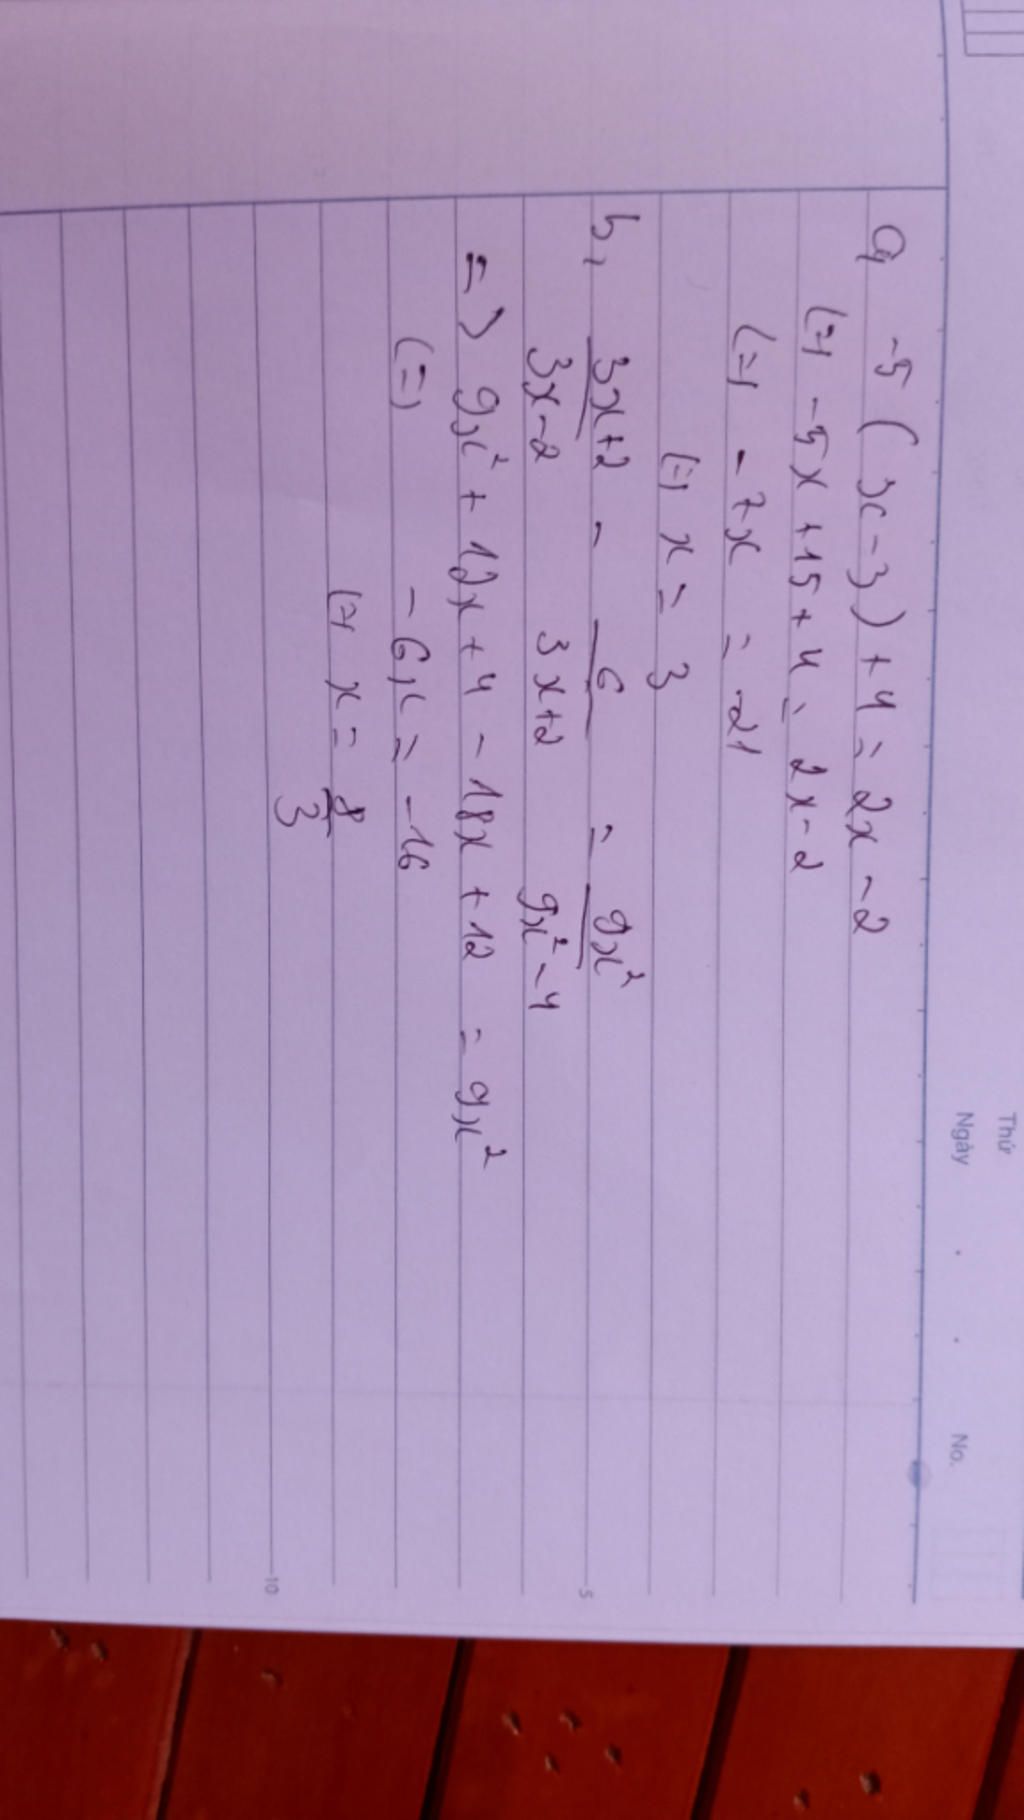 Thứ
Ngày . . No.
a, -5(x-3)+4 = 2x-2
(=) -5x+15+4 = 2x-2
(=) -7x = -21
(=) x = 3
b, \frac{3x+2}{3x-2} - \frac{6}{3x+2} = \frac{9x²}{9x²-4}
=> 9x² + 12x + 4 - 18x + 12 = 9x²
(=) -6x = -16
(=) x = \frac{8}{3}
5
10